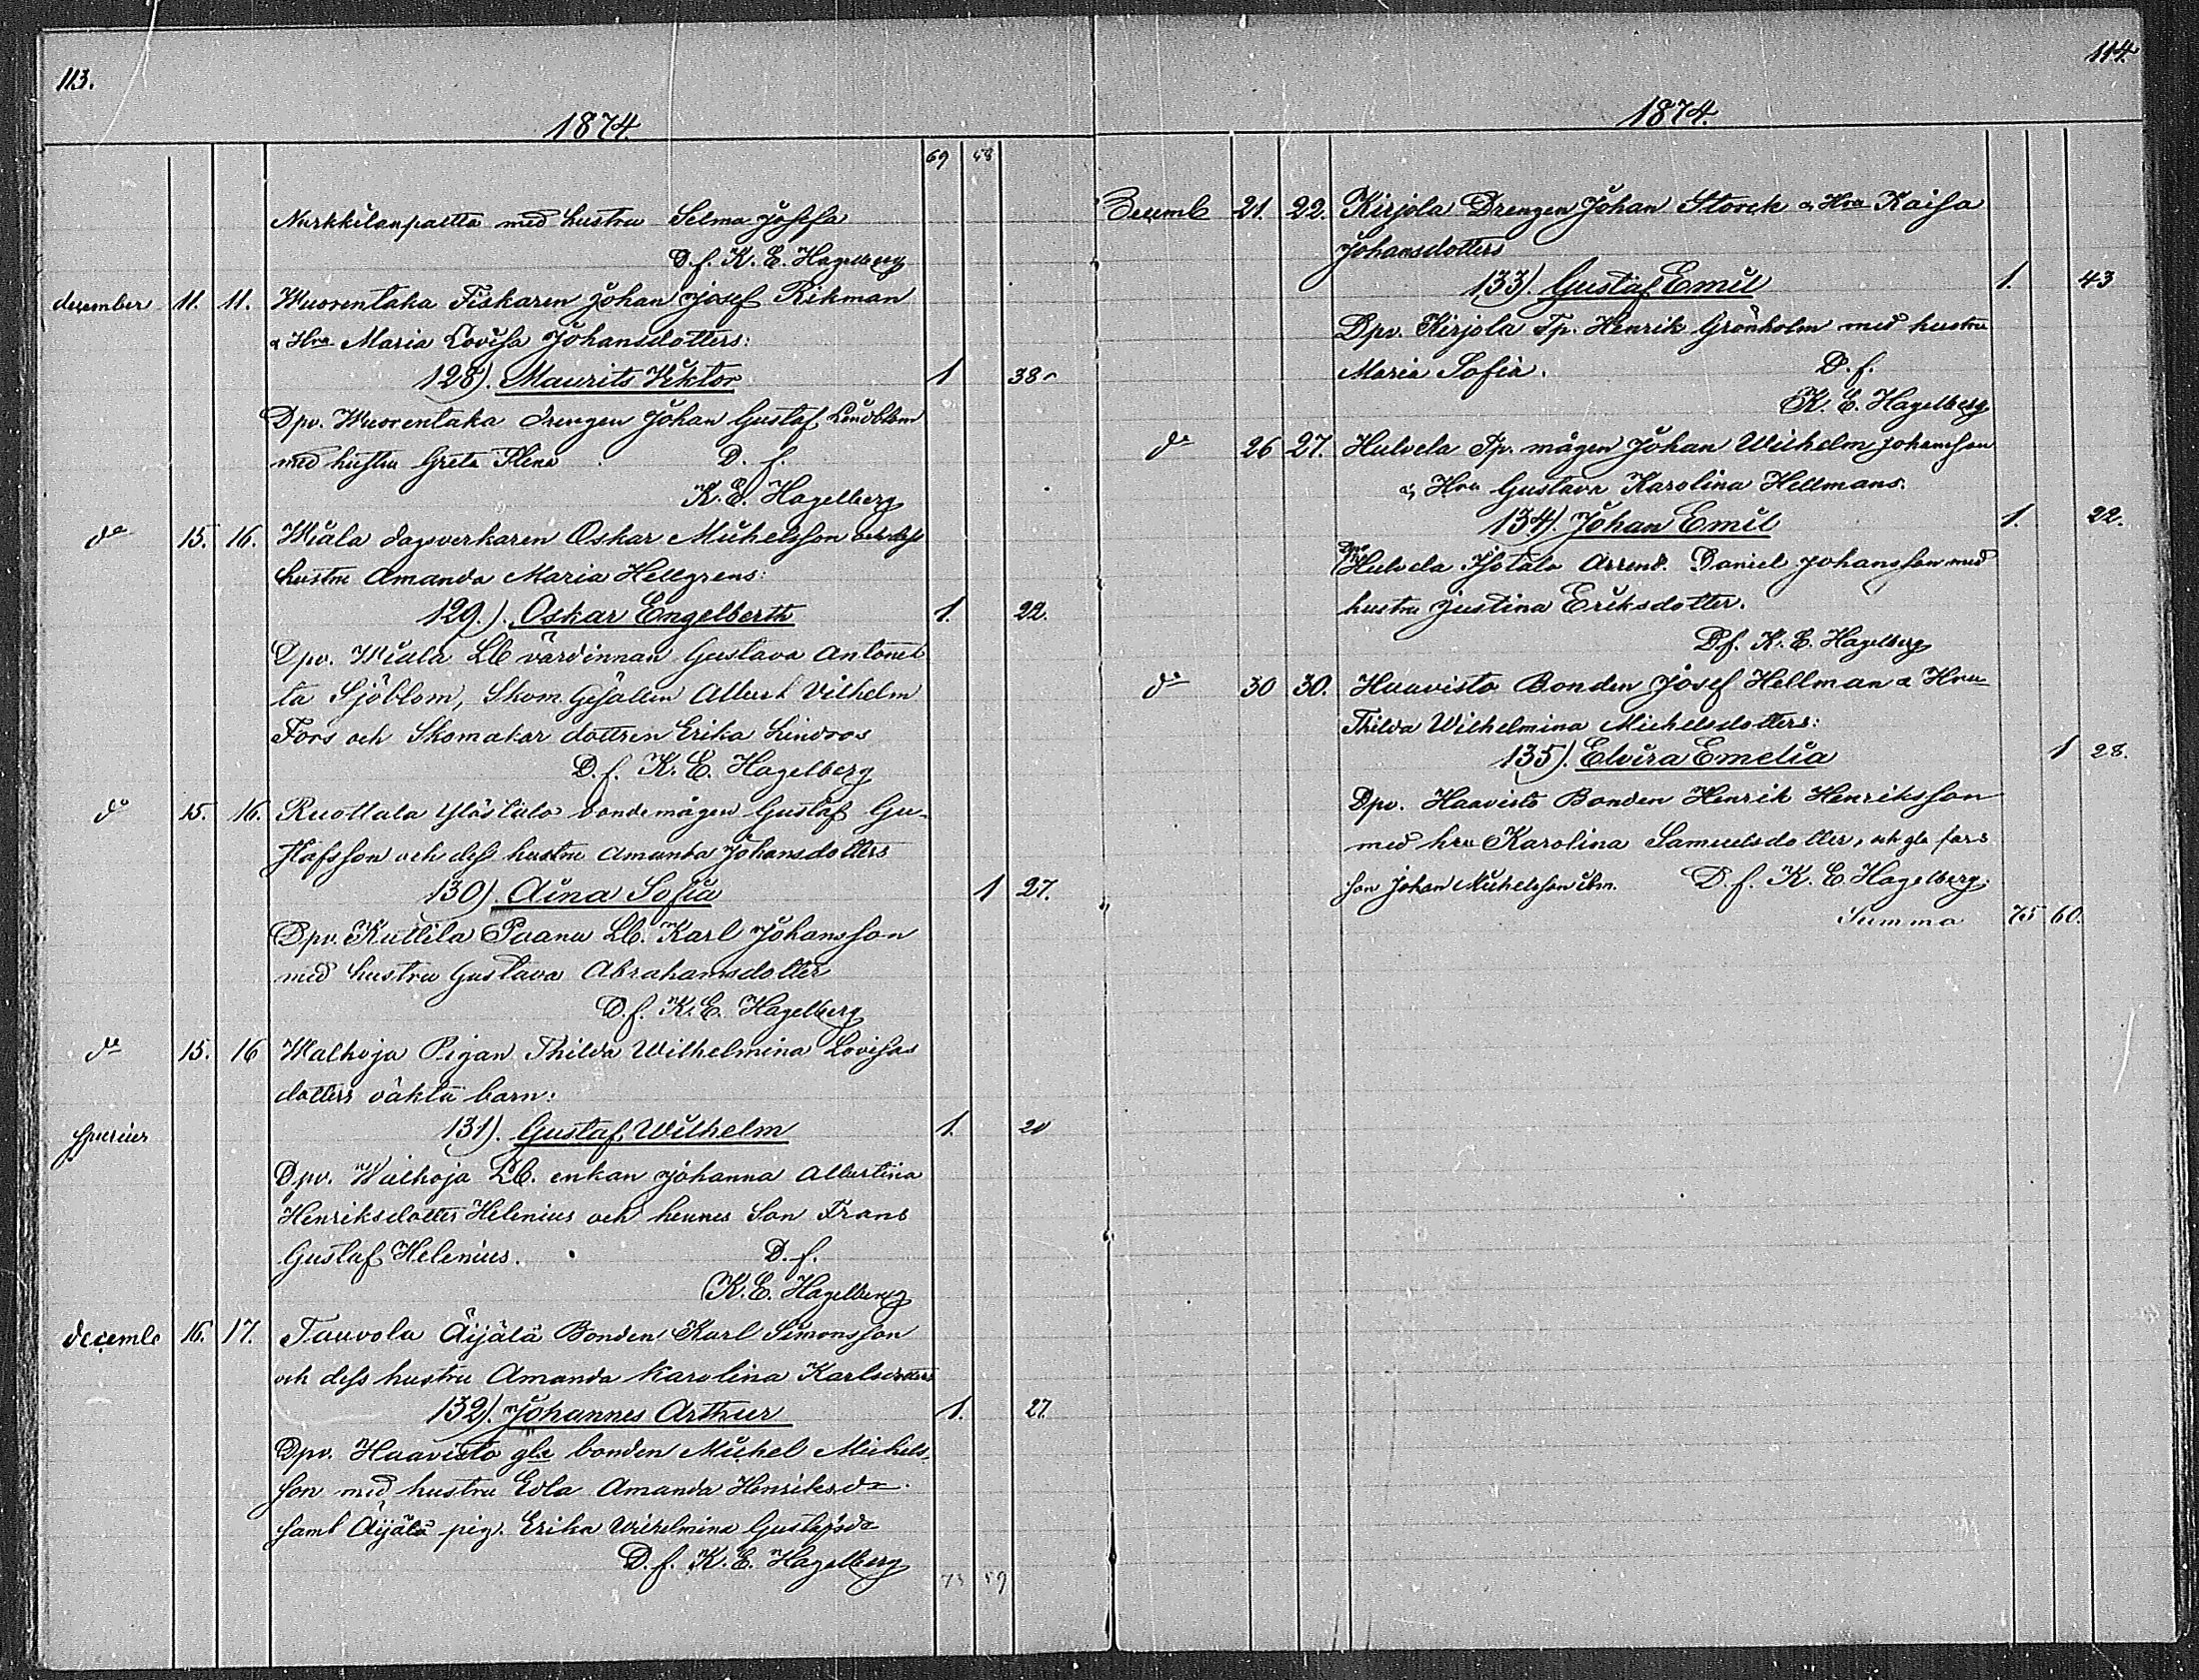 113.
1874.
69 58
med hustru Selma Josefa
D. f. K. E. Hagelberg
december 11. 11. Wuorentaka Fiskaren Johan Josef Rikman
& Hru Maria Lovisa Johansdotters:
128). Maurits Viktor 1 38
Dpv. Wuorentaka drengen Johan Gustaf Lindblom
med hustru Greta Lena. D. f.
K. E. Hagelberg
do 15. 16. Wiala dagsverkaren Oskar Michelsson och dess
hustru Amanda Maria Hellgrens:
129.). Oskar Engelberth 1. 22.
Dpv. Wiala Lb värdinnan Gustava Antonet
ta Sjöblom, Skom. Gesällen Albert Vilhelm
Fors och Skomakar dottren Erika Lindroos
D. f. K. E. Hagelberg
do 15. 16. Ruottala Ylöstalo bondemågen Gustaf Gu-
stafsson och dess hustru Amanda Johansdotters
130). Aina Sofia 1 27.
Dpv. Kuttila Paanu Lb. Karl Johansson
med hustru Gustava Abrahamsdotter
D. f. K. E. Hagelberg
do 15. 16 Walhoja Pigan Thilda Wilhelmina Lovisas
dotters oäkta barn:
spurius 131). Gustaf Wilhelm 1. 20
Dpv. Walhoja Lb. enkan Johanna Albertina
Henriksdotter Helenius och hennes Son Frans
Gustaf Helenius. D. f.
K. E. Hagelberg
decemb 16. 17. Tauvola Äijälä Bonden Karl Simonsson
och dess hustru Amanda Karolina Karlsdotters
132). Johannes Arthur 1. 27.
Dpv. Haavisto gle bonden Michel Michels-
son med hustru Edla Amanda Henriksdr
samt Äijälä pig. Erika Wilhelmina Gustafsdr
D. f. K. E. Hagelberg
73 59
114.
1874.
Decemb 21. 22. Kirjola Drengen Johan Storck & Hru Kaisa
Johansdotters
133). Gustaf Emil 1. 43
Dpv. Kirjola Tp. Henrik Grönholm med hustru
Maria Sofia. D. f.
K. E. Hagelberg
do 26 27. Hulvela Tp. mågen Johan Wilhelm Johansson
& Hru Gustava Karolina Hellmans.
134). Johan Emil 1. 22.
Dpv Hulvela Isotalo Arrend. Daniel Johansson med
hustru Justina Eriksdotter.
D. f. K. E. Hagelberg
do 30 30. Haavisto Bonden Josef Hellman & Hru
Thilda Wilhelmina Michelsdotters:
135). Elvira Emelia 1 28.
Dpv. Haavisto Bonden Henrik Henriksson
med hru Karolina Samuelsdotter, och gla fars
son Johan Michelsson ibm. D. f. K. E. Hagelberg.
Summa 75 60.